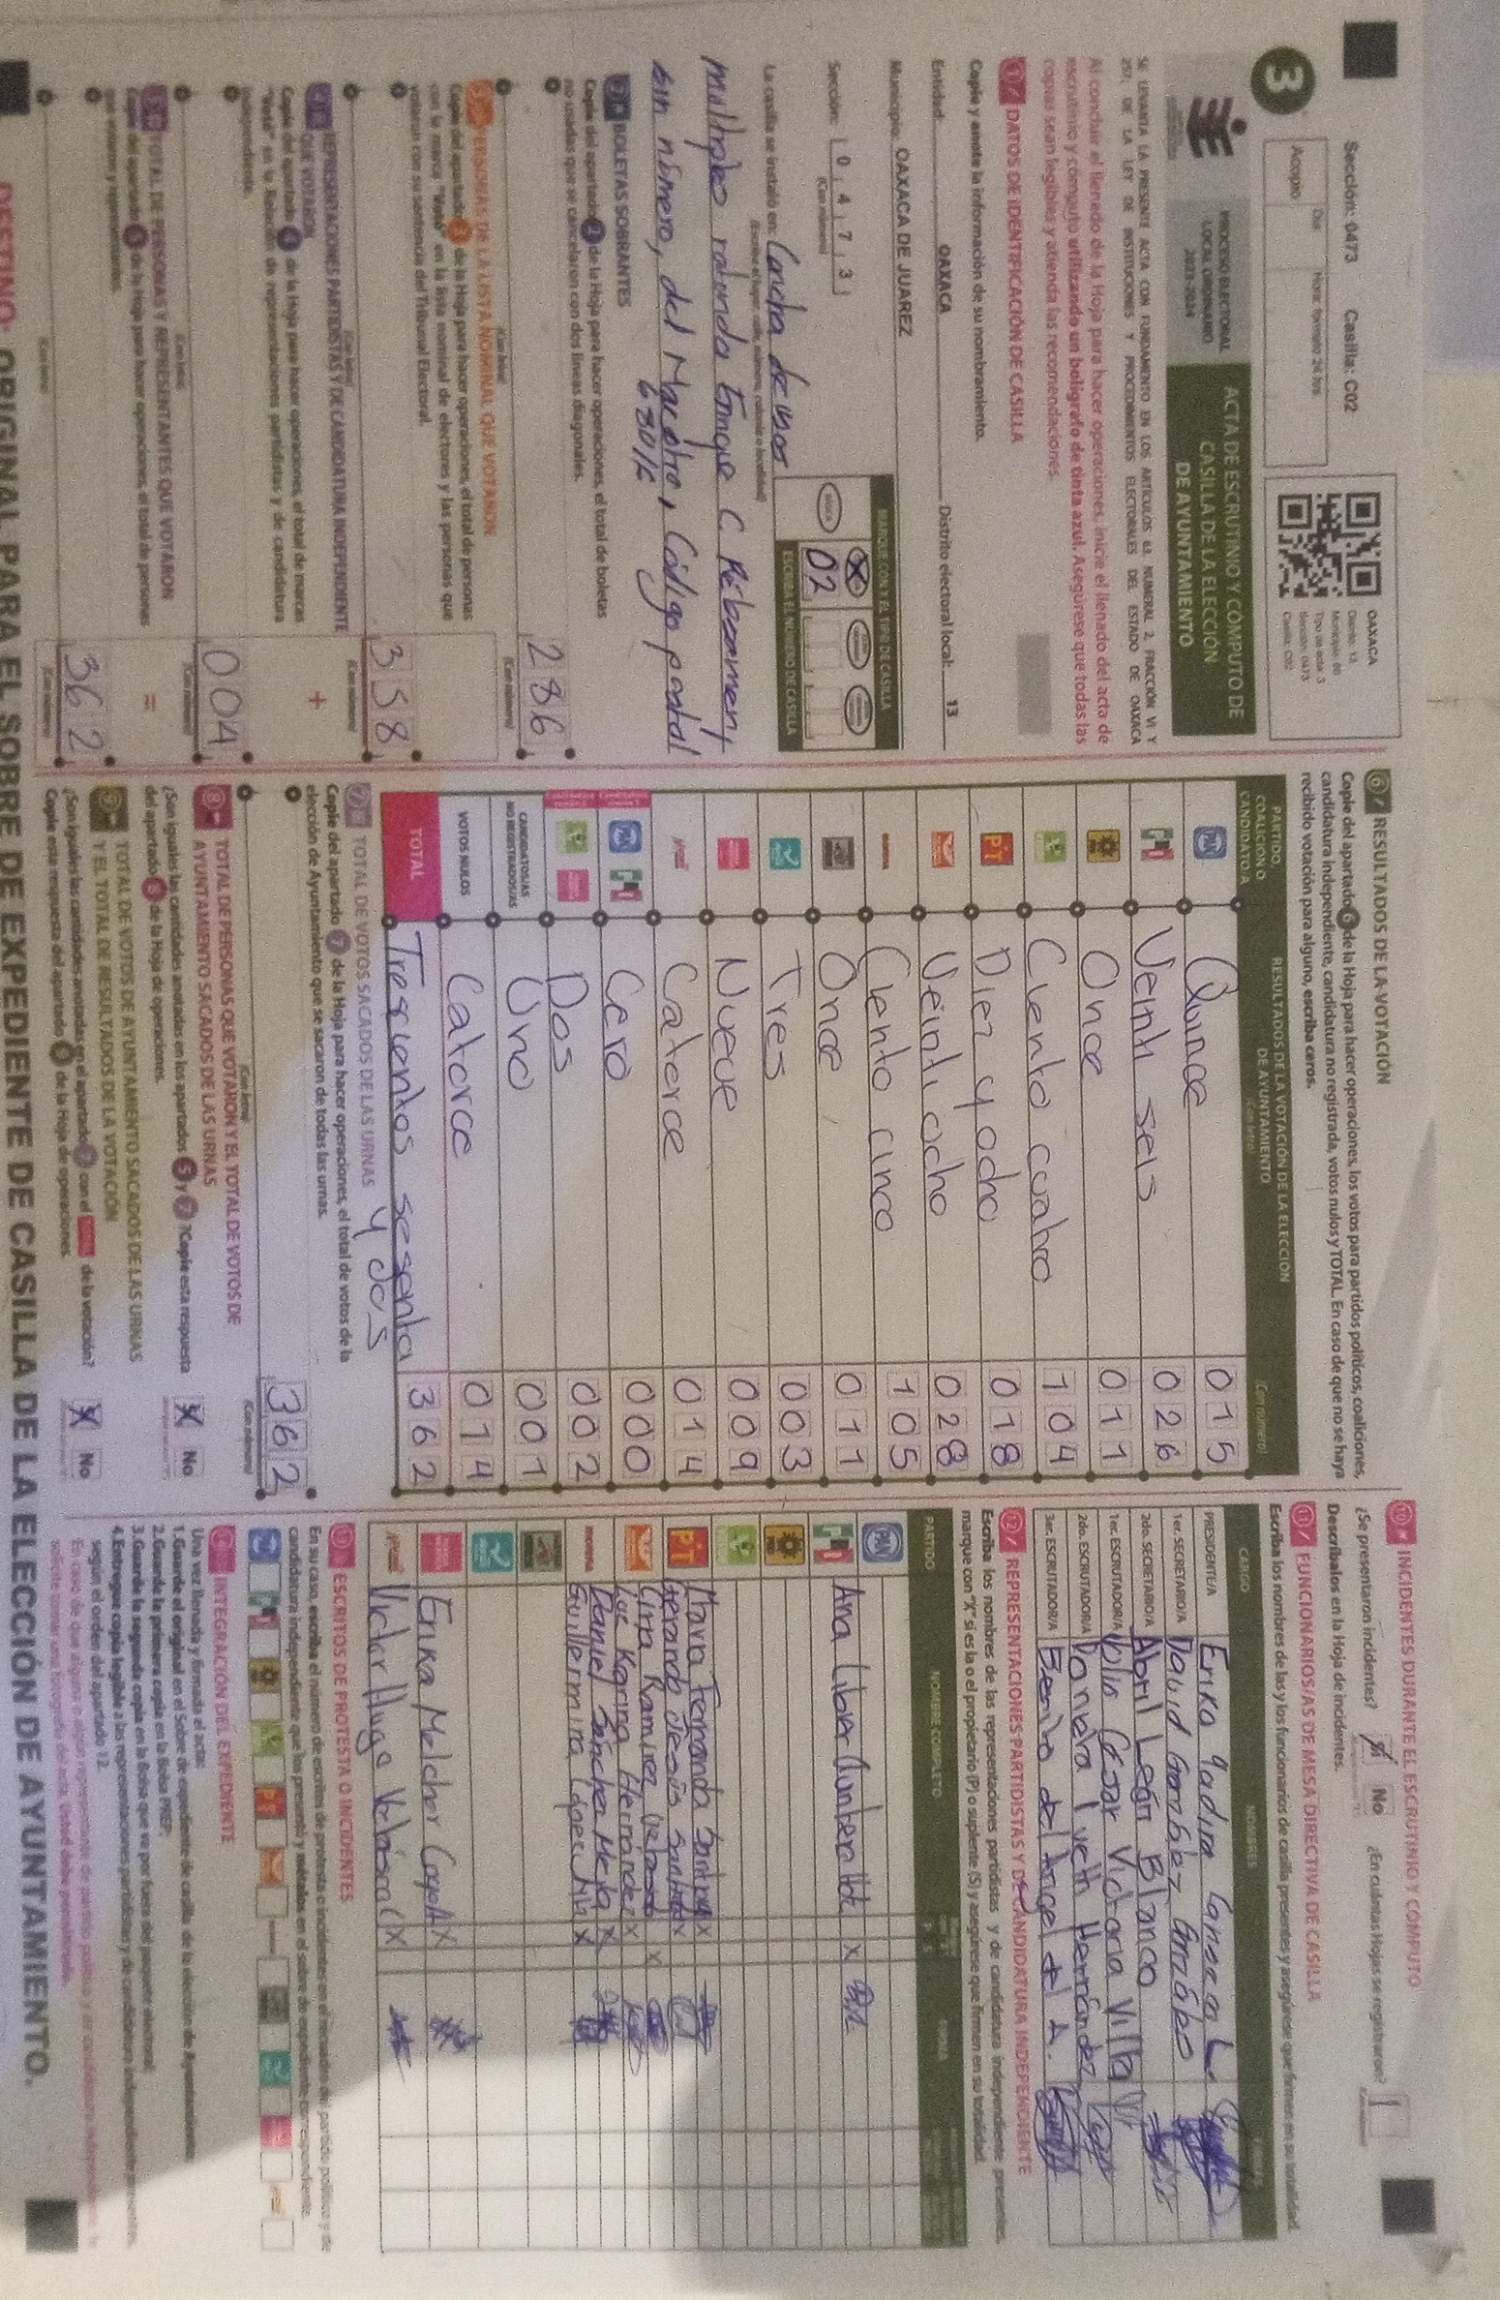 3
Sección: 0473 Casilla: C02
Acopio
Día Hora: formato 24 hrs
OAXACA
Distrito: 13
Tipo de acta: 3
Sección: 0473
Casilla: C02
PROCESO ELECTORAL
LOCAL ORDINARIO
2023-2024
ACTA DE ESCRUTINIO Y CÓMPUTO DE
CASILLA DE LA ELECCIÓN
DE AYUNTAMIENTO
SE LEVANTA LA PRESENTE ACTA CON FUNDAMENTO EN LOS ARTÍCULOS 63, NUMERAL 2, FRACCIÓN VI Y
237, DE LA LEY DE INSTITUCIONES Y PROCEDIMIENTOS ELECTORALES DEL ESTADO DE OAXACA
Al concluir el llenado de la Hoja para hacer operaciones, inicie el llenado del acta de
escrutinio y cómputo utilizando un bolígrafo de tinta azul. Asegúrese que todas las
copias sean legibles y atienda las recomendaciones.
1 DATOS DE IDENTIFICACIÓN DE CASILLA
Copie y anote la información de su nombramiento.
Entidad: OAXACA Distrito electoral local: 13
Municipio: OAXACA DE JUAREZ
Sección: 0 4 7 3
(Con número)
MARQUE CON X EL TIPO DE CASILLA
ESCRIBA EL NÚMERO DE CASILLA
02
La casilla se instaló en: Cancha de usos
(Escriba el lugar, calle, número, colonia o localidad)
multiples rotonda Enrique C. Rébsamen,
sin número, del Maestro, Código postal
68016
2 BOLETAS SOBRANTES
Copie del apartado 2 de la Hoja para hacer operaciones, el total de boletas
no usadas que se cancelaron con dos líneas diagonales.
286
(Con letra) (Con número)
3 PERSONAS DE LA LISTA NOMINAL QUE VOTARON
Copie del apartado 3 de la Hoja para hacer operaciones, el total de personas
con la marca "Votó" en la lista nominal de electores y las personas que
votaron con su sentencia del Tribunal Electoral.
358
(Con letra) (Con número)
4 REPRESENTACIONES PARTIDISTAS Y DE CANDIDATURA INDEPENDIENTE
QUE VOTARON
Copie del apartado 4 de la Hoja para hacer operaciones, el total de marcas
"Votó" en la Relación de representaciones partidistas y de candidatura
independiente.
+
004
(Con letra) (Con número)
5 TOTAL DE PERSONAS Y REPRESENTANTES QUE VOTARON
Copie del apartado 5 de la Hoja para hacer operaciones, el total de personas
que votaron y representantes.
=
362
(Con letra) (Con número)
6 RESULTADOS DE LA VOTACIÓN
Copie del apartado 6 de la Hoja para hacer operaciones, los votos para partidos políticos, coaliciones,
candidatura independiente, candidatura no registrada, votos nulos y TOTAL. En caso de que no se haya
recibido votación para alguno, escriba ceros.
PARTIDO,
COALICIÓN O
CANDIDATO/A
RESULTADOS DE LA VOTACIÓN DE LA ELECCIÓN
DE AYUNTAMIENTO
(Con letra) (Con número)
PAN Quince 015
PRI Veinti seis 026
PRD Once 011
Ciento cuatro 104
PT Diez y ocho 018
Veinti ocho 028
morena Ciento cinco 105
Once 011
Tres 003
Nueve 009
Catorce 014
PAN PRI Cero 000
Dos 002
CANDIDATOS/AS
NO REGISTRADOS/AS Uno 001
VOTOS NULOS Catorce 014
TOTAL Trescientos sesenta 362
y dos
7 TOTAL DE VOTOS SACADOS DE LAS URNAS
Copie del apartado 7 de la Hoja para hacer operaciones, el total de votos de la
elección de Ayuntamiento que se sacaron de todas las urnas.
362
(Con letra) (Con número)
8 TOTAL DE PERSONAS QUE VOTARON Y EL TOTAL DE VOTOS DE
AYUNTAMIENTO SACADOS DE LAS URNAS
¿Son iguales las cantidades anotadas en los apartados 5 y 7? Copie esta respuesta
del apartado 8 de la Hoja de operaciones.
No
9 TOTAL DE VOTOS DE AYUNTAMIENTO SACADOS DE LAS URNAS
Y EL TOTAL DE RESULTADOS DE LA VOTACIÓN
¿Son iguales las cantidades anotadas en el apartado 7 con el TOTAL de la votación?
Copie esta respuesta del apartado 9 de la Hoja de operaciones.
No
10 INCIDENTES DURANTE EL ESCRUTINIO Y CÓMPUTO
¿Se presentaron incidentes? No ¿En cuántas Hojas se registraron? 1
Descríbalos en la Hoja de incidentes.
11 FUNCIONARIOS/AS DE MESA DIRECTIVA DE CASILLA
Escriba los nombres de las y los funcionarios de casilla presentes y asegúrese que firmen en su totalidad.
CARGO NOMBRES FIRMAS
PRESIDENTE/A Erika Yadira
1er. SECRETARIO/A David González González
2do. SECRETARIO/A Abril León Blanco
1er. ESCRUTADOR/A Julio César Victoria Villa
2do. ESCRUTADOR/A Daniela Iveth Hernández
3er. ESCRUTADOR/A Benito del Angel
12 REPRESENTACIONES PARTIDISTAS Y DE CANDIDATURA INDEPENDIENTE
Escriba los nombres de las representaciones partidistas y de candidatura independiente presentes,
marque con "X" si es la o el propietario (P) o suplente (S) y asegúrese que firmen en su totalidad.
PARTIDO NOMBRE COMPLETO P S FIRMA
PAN
PRI Ana Liber X
PRD
PT Mayra Fernanda X
Gerardo Jesús X
Cirra Ramirez X
Luz Karina Hernández X
morena Daniel Sánchez Mejia X
Guillermina López X
Erika Melchor X
Victor Hugo X
13 ESCRITOS DE PROTESTA O INCIDENTES
En su caso, escriba el número de escritos de protesta o incidentes en el recuadro del partido político y de
candidatura independiente que los presentó y métalos en el sobre de expediente correspondiente.
14 INTEGRACIÓN DEL EXPEDIENTE
Una vez llenada y firmada el acta:
1.Guarde el original en el Sobre de expediente de casilla de la elección de Ayuntamiento.
2.Guarde la primera copia en la Bolsa PREP.
3.Guarde la segunda copia en la Bolsa que va por fuera del paquete electoral.
4.Entregue copia legible a las representaciones partidistas y de candidatura independiente presentes,
según el orden del apartado 12.
DESTINO: ORIGINAL PARA EL SOBRE DE EXPEDIENTE DE CASILLA DE LA ELECCIÓN DE AYUNTAMIENTO.